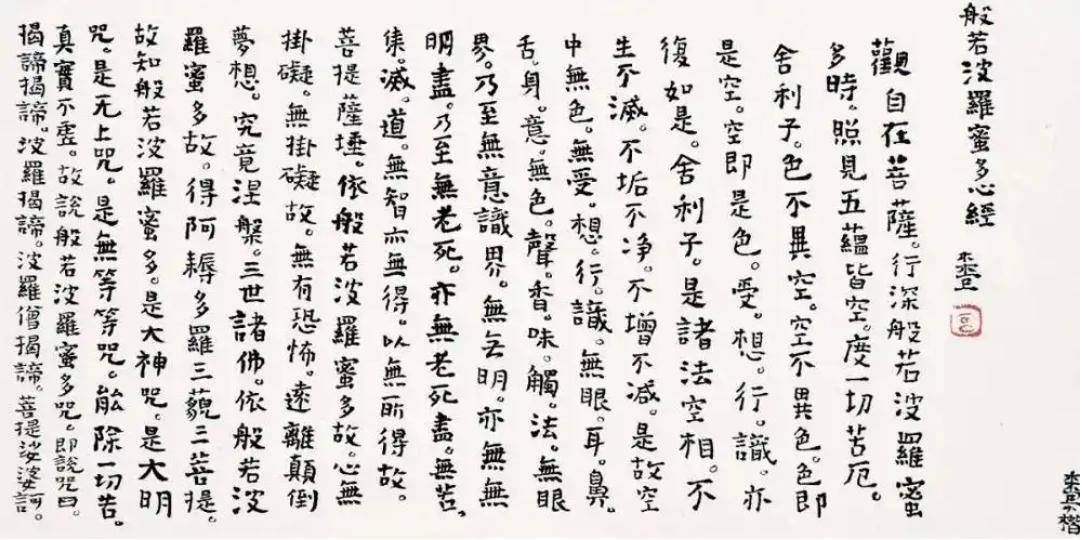 般若波羅蜜多心經
觀自在菩薩。行深般若波羅蜜
多時。照見五蘊皆空。度一切苦厄。
舍利子。色不異空。空不異色。色即
是空。空即是色。受。想。行。識。亦
復如是。舍利子。是諸法空相。不
生不滅。不垢不净。不增不減。是故空
中無色。無受。想。行。識。無眼。耳。鼻。
舌。身。意。無色。聲。香。味。觸。法。無眼
界。乃至無意識界。無无明。亦無無
明盡。乃至無老死。亦無老死盡。無苦、
集。滅。道。無智亦無得。以無所得故。
菩提薩埵。依般若波羅蜜多故。心無
掛礙。無掛礙故。無有恐怖。遠離顛倒
夢想。究竟涅槃。三世諸佛。依般若波
羅蜜多故。得阿耨多羅三藐三菩提。
故知般若波羅蜜多。是大神咒。是大明
咒。是无上咒。是無等等咒。能除一切苦。
真實不虛。故說般若波羅蜜多咒。即說咒曰。
揭諦揭諦。波羅揭諦。波羅僧揭諦。菩提娑婆訶。